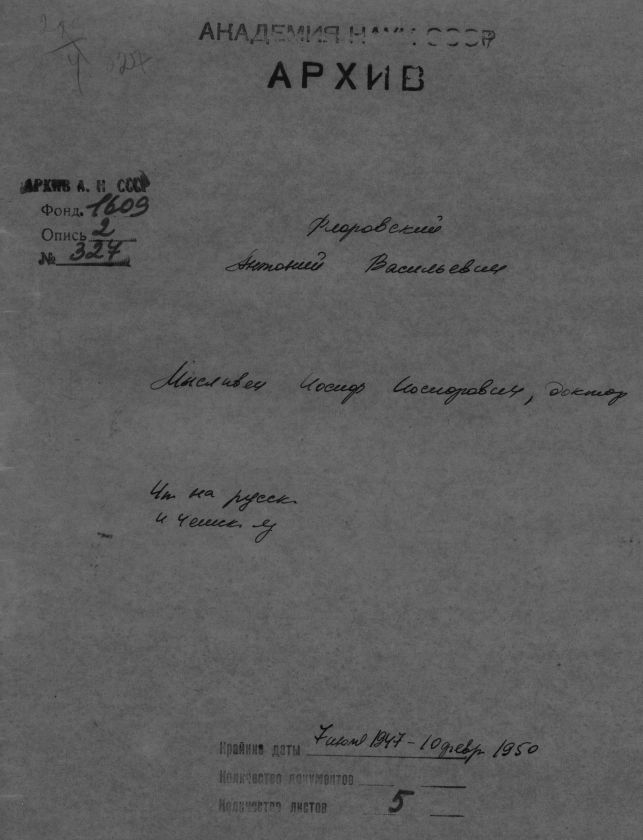 АКАДЕМИЯ НАУК СССР
АРХИВ
327
АРХИВ А. Н. СССР
Фонд. 1609
Опись 2
№ 327
Флоровский
Антоний Васильевич
Мысливец Иосиф Иосифович, доктор
на русск.
и чешск. яз
Крайние даты 7 июня 1947 - 10 февр. 1950
Количество документов
Количество листов 5